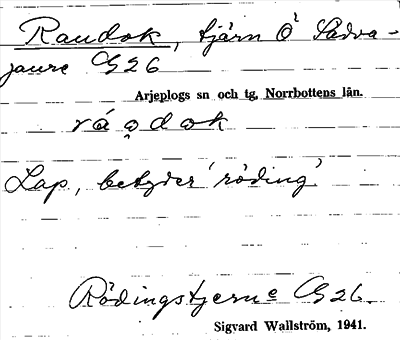 Raudok, tjärn Ö Sädva-
jaure G26
Arjeplogs sn och tg, Norrbottens län.
ráo̯dok
Lap, betyder 'röding'
Rödingstjerne G26.
Sigvard Wallström, 1941.